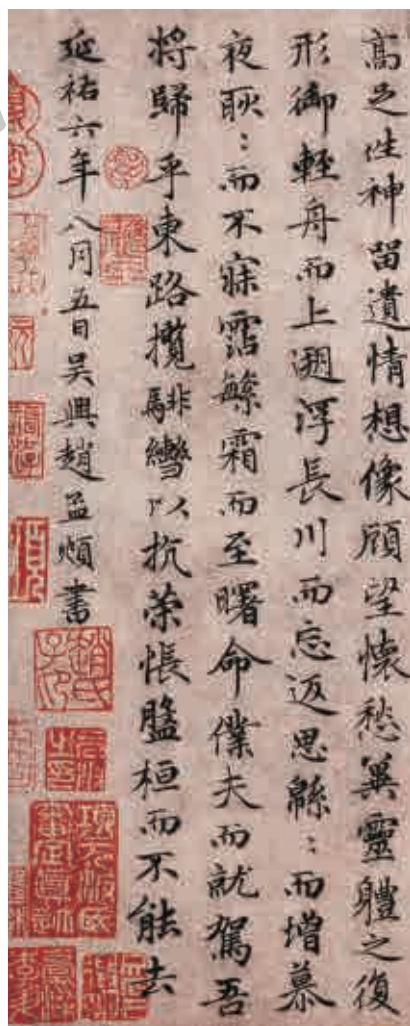 高足往神留遺情想像顧望懷愁冀靈軆之復
形御輕舟而上遡浮長川而忘返思緜〻而增慕
夜耿〻而不寐霑繁霜而至曙命僕夫而就駕吾
將歸乎東路攬騑轡以抗策悵盤桓而不能去
延祐六年八月五日吳興趙孟頫書
趙氏子昂